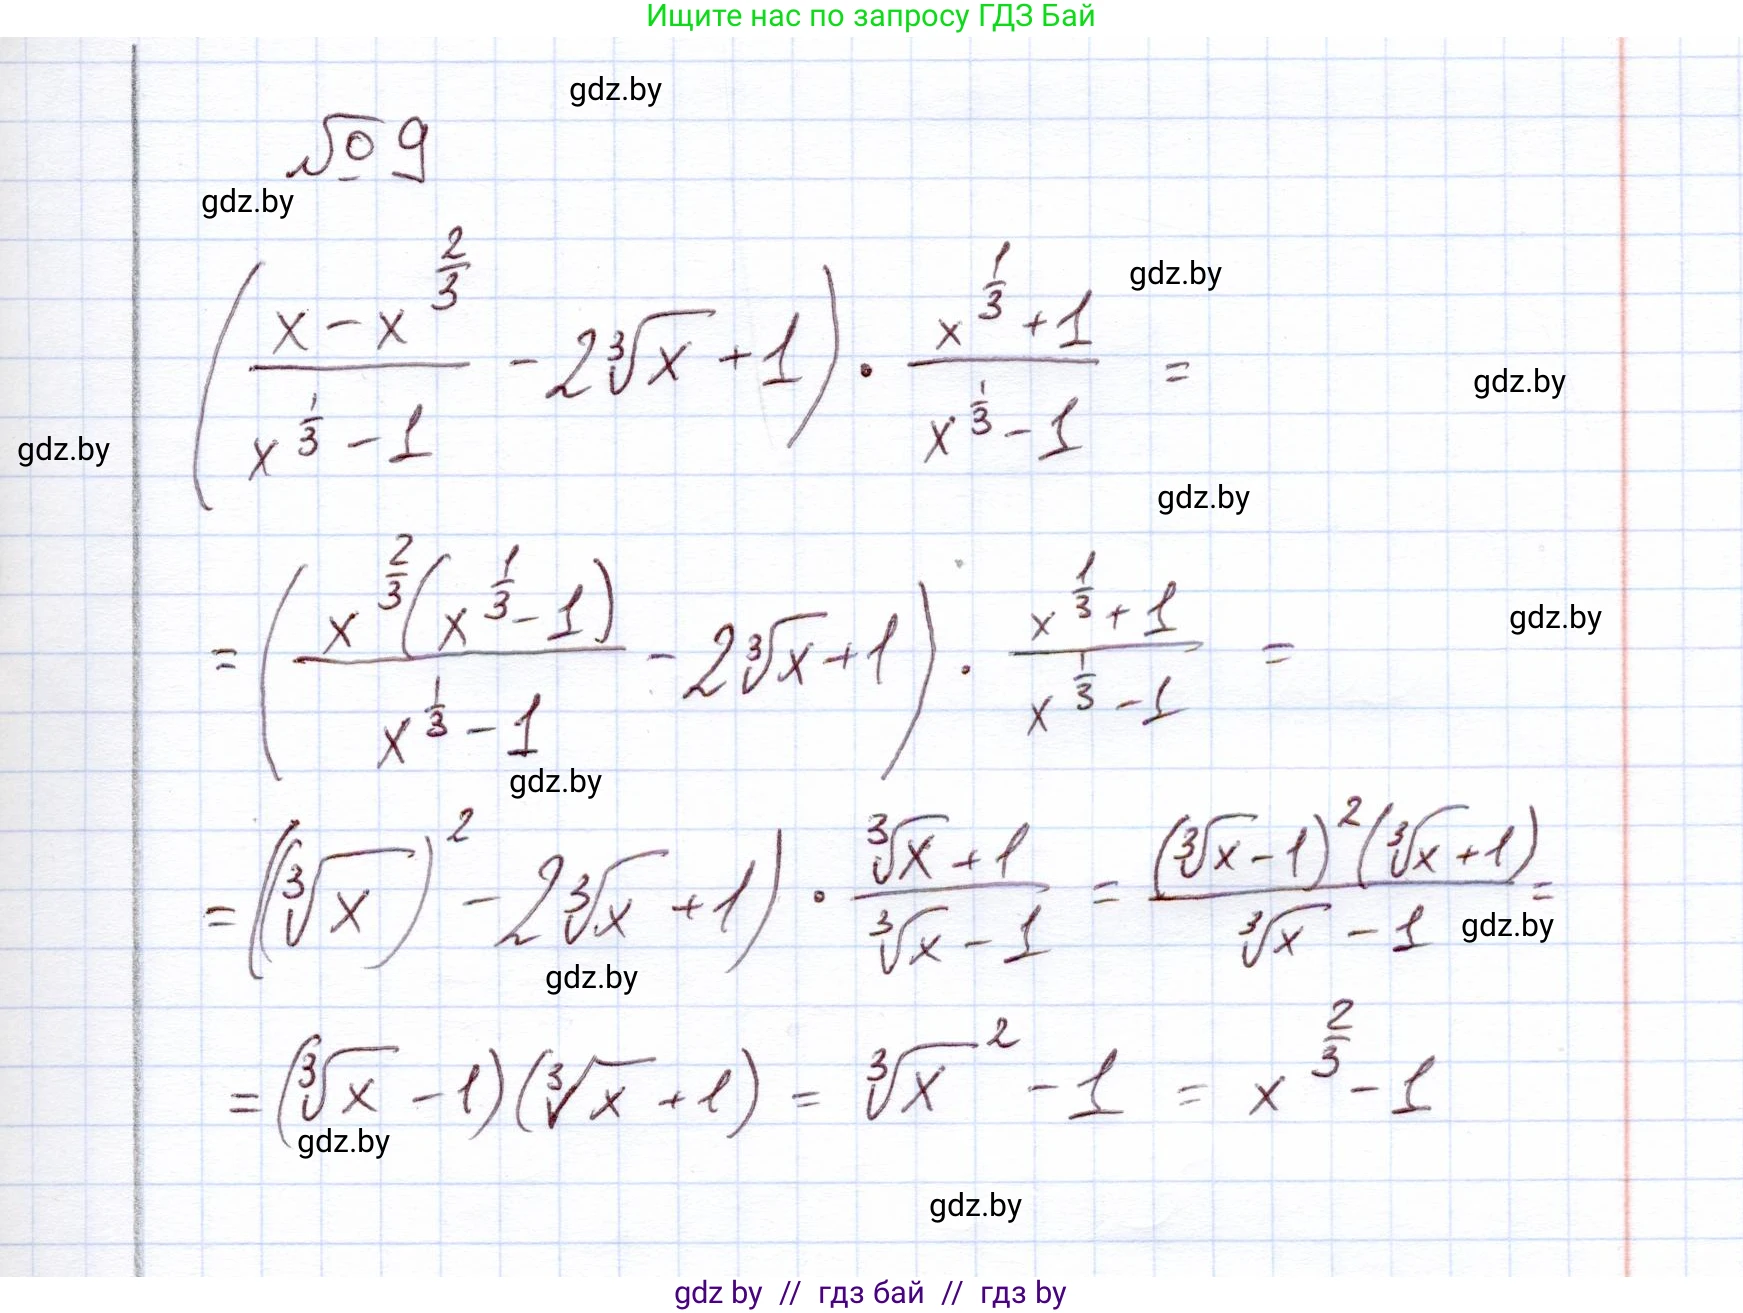 Ищите нас по запросу ГДЗ Бай
gdz.by
№ 9
gdz.by
(x - x^(2/3))/(x^(1/3) - 1) - 2∛x + 1) · (x^(1/3) + 1)/(x^(1/3) - 1) =
gdz.by
gdz.by
gdz.by
gdz.by
= (x^(2/3)(x^(1/3) - 1)/(x^(1/3) - 1) - 2∛x + 1) · (x^(1/3) + 1)/(x^(1/3) - 1) =
gdz.by
gdz.by
= ((∛x)² - 2∛x + 1) · (∛x + 1)/(∛x - 1) = (∛x - 1)²(∛x + 1)/(∛x - 1) =
gdz.by
gdz.by
= (∛x - 1)(∛x + 1) = ∛x² - 1 = x^(2/3) - 1
gdz.by
gdz.by
gdz by // гдз бай // гдз by